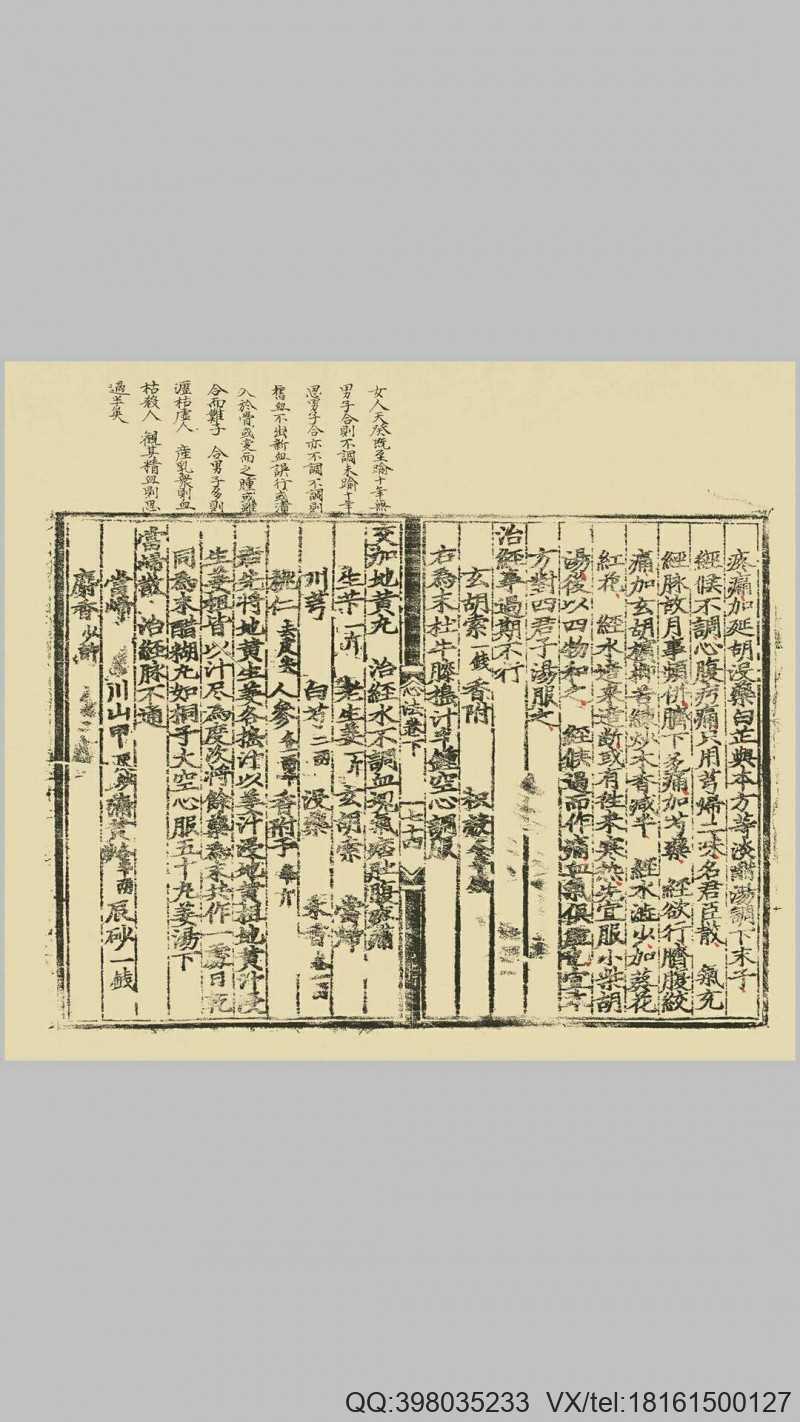 女人天癸既至踰十年無
男子合則不調未踰十年
思男子合亦不調不調則
舊血不出新血誤行或漬
入於骨或變而之腫或雖
合而難子 合男子多則
瀝枯虛人 產乳衆則血
枯殺人 觀其精血則思
過半矣
疼痛加延胡沒藥白芷與本方等淡醋湯調下末子
經候不調心腹㽲痛只用芎歸二味名君臣散 氣充
經脉故月事頻併臍下多痛加芍藥 經欲行臍腹絞
痛加玄胡檳榔苦練炒木香減半 經水澁少加葵花
紅花 經水適來適斷或有往來寒熱先宜服小柴胡
湯後以四物和之 經候過而作痛血氣俱虛也宜本
方對四君子湯服之
治經事過期不行
玄胡索一錢 香附 枳殼各半錢
右為末杜牛膝搗汁半鍾空心調服
心法卷下 七十四
交加地黃丸 治經水不調血塊氣痞肚腹疼痛
生芐一斤 老生薑一斤 玄胡索 當歸
川芎 白芍二兩 沒藥 木香各一兩
桃仁去皮尖 人參各一兩半 香附子半斤
右先將地黃生薑各搗汁以薑汁浸地黃柤地黃汁浸
生薑柤皆以汁尽為度次將餘藥為末共作一處日乾
同為末醋糊丸如桐子大空心服五十丸姜湯下
當歸散 治經脉不通
當歸 川山甲 蒲黃各半兩 辰砂一錢
麝香少許
QQ:398035233 VX/tel:18161500127